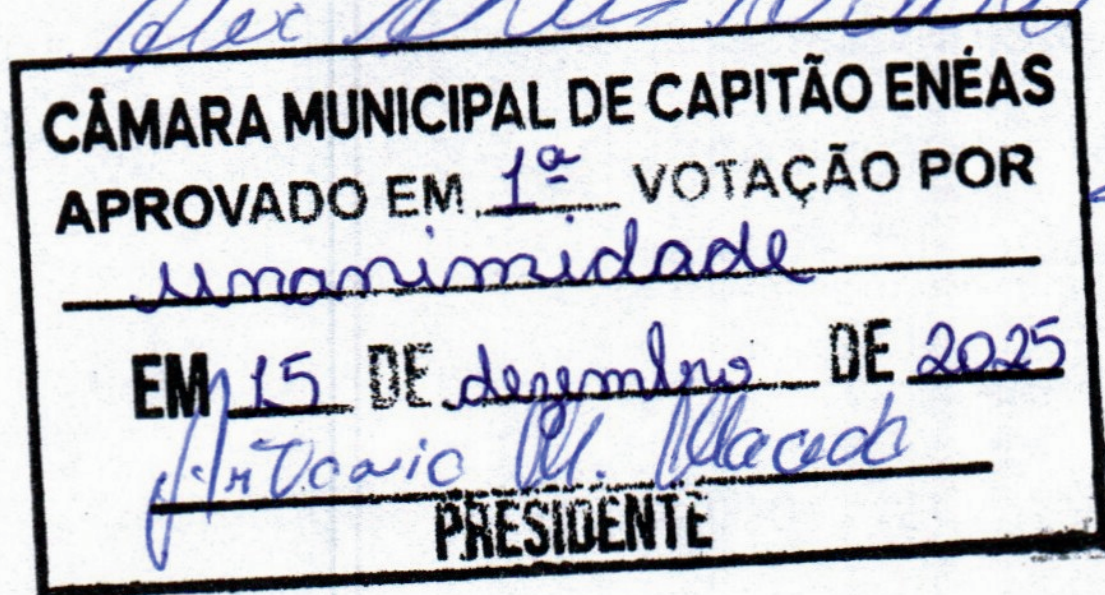 Alex
CÂMARA MUNICIPAL DE CAPITÃO ENÉAS
APROVADO EM 1ª VOTAÇÃO POR
unanimidade
EM 15 DE dezembro DE 2025
M. Macedo
PRESIDENTE